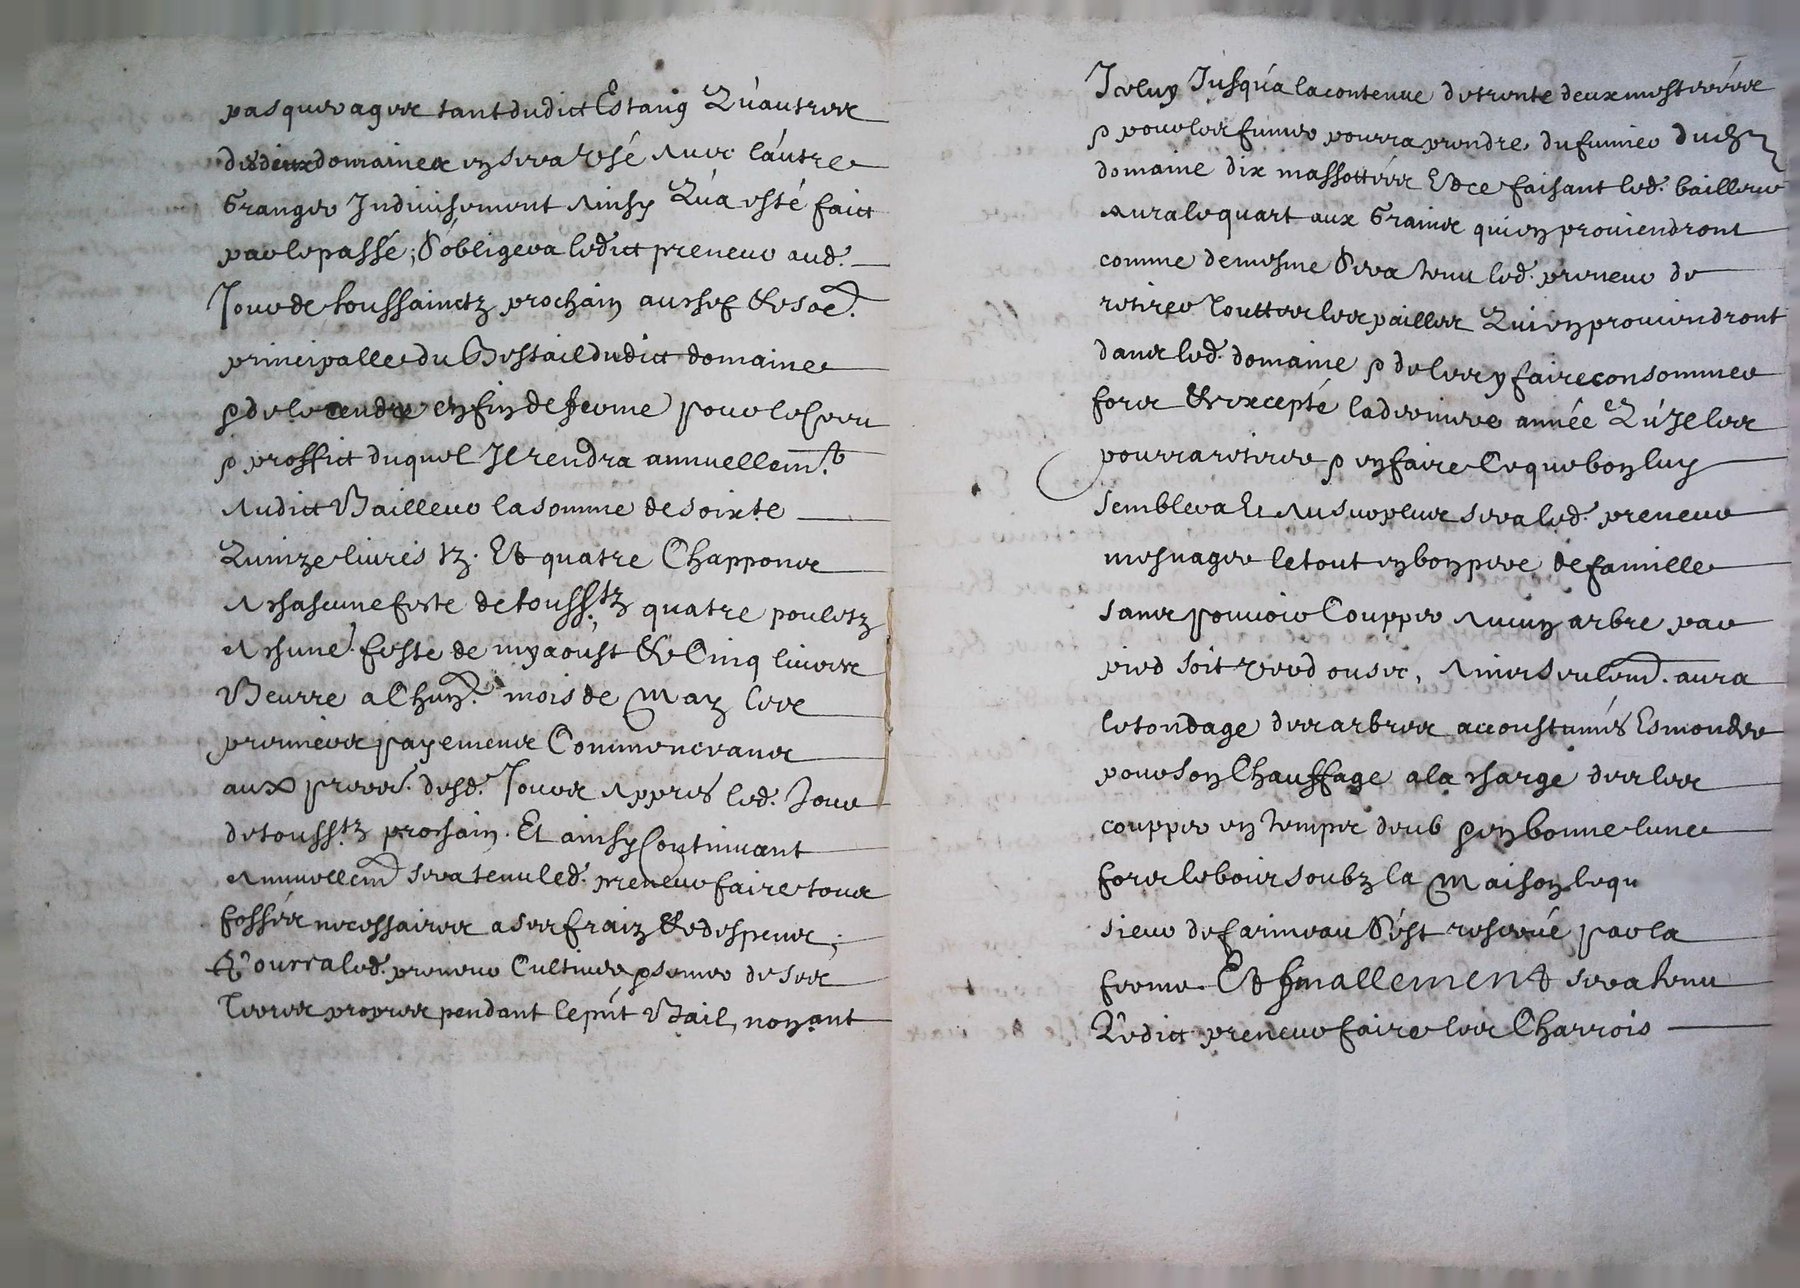 pasquerages tant dudict Estang Qu'autres
desdeux domaines en sera Usé Avec l'autre
Granger Indivisement Ainsy Qu'a esté faict
par le passé; S'obligera ledict preneur aud.
Jour de toussainctz prochain au chef &
principalle du Bestail dudict domaine
& de le rendre en fin de ferme pour le
& proffict duquel Il rendra annuellemt.
Audict Bailleur la somme de soixte
Quinze livres tz. Et quatre Chappons
A chascune feste de touss.tz quatre pouletz
A chune. feste de myaoust & Cinq livres
Beurre a Chun. mois de May les
premiers payements Commencerans
aux desd. Jours Appres led. Jour
de touss.tz prochain. Et ainsy Continuant
Annuellem sera tenu led. preneur faire tous
fossés necessaires a ses fraiz & despens;
Pourra led. preneur Cultiver & semer de ses
Terres propres pendant le pnt Bail, noyant
Iceluy Jusqu'a la contenue de trente deux mesterées
& pour les fumer pourra prendre du fumier dud
domaine dix massottées Et ce faisant led. bailleur
Aura le quart aux Grains qui en proviendront
comme de mesme Sera tenu led. preneur de
retirer Touttes les pailles Qui en proviendront
dans led. domaine & de les y faire consommer
fors & excepté la derniere année Qu'Il les
pourra retirer & en faire Ce que bon luy
semblera Et Au surplus sera led. preneur
mesnager le tout en bon pere de famille
sans pouvoir Coupper Aucun arbre par
pied soit verd ou sec, Ains seulemt. aura
le tondage des arbres accoustumés Esmonder
pour son Chauffage a la charge de les
coupper en temps deub & en bonne lune
fors le bois soubz la Maison lequ
sieur de farineau S'est reservé par la
ferme. Et finallement sera tenu
Ledict preneur faire les Charrois